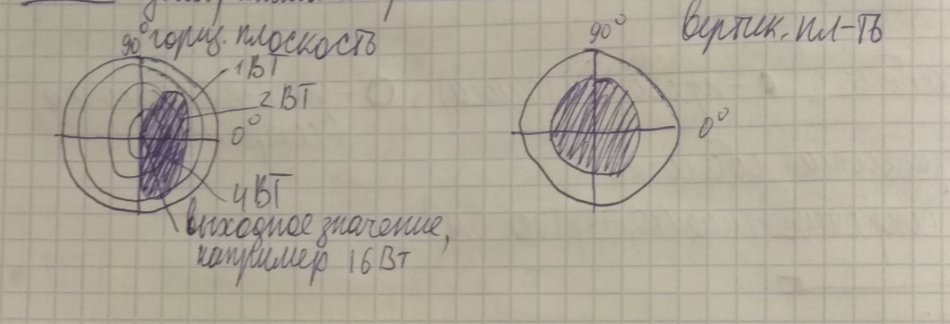 90° гориз. плоскость
1 ВТ
2 ВТ
0°
4 ВТ
выходное значение,
например 16 Вт
90°
вертик. пл-ть
0°